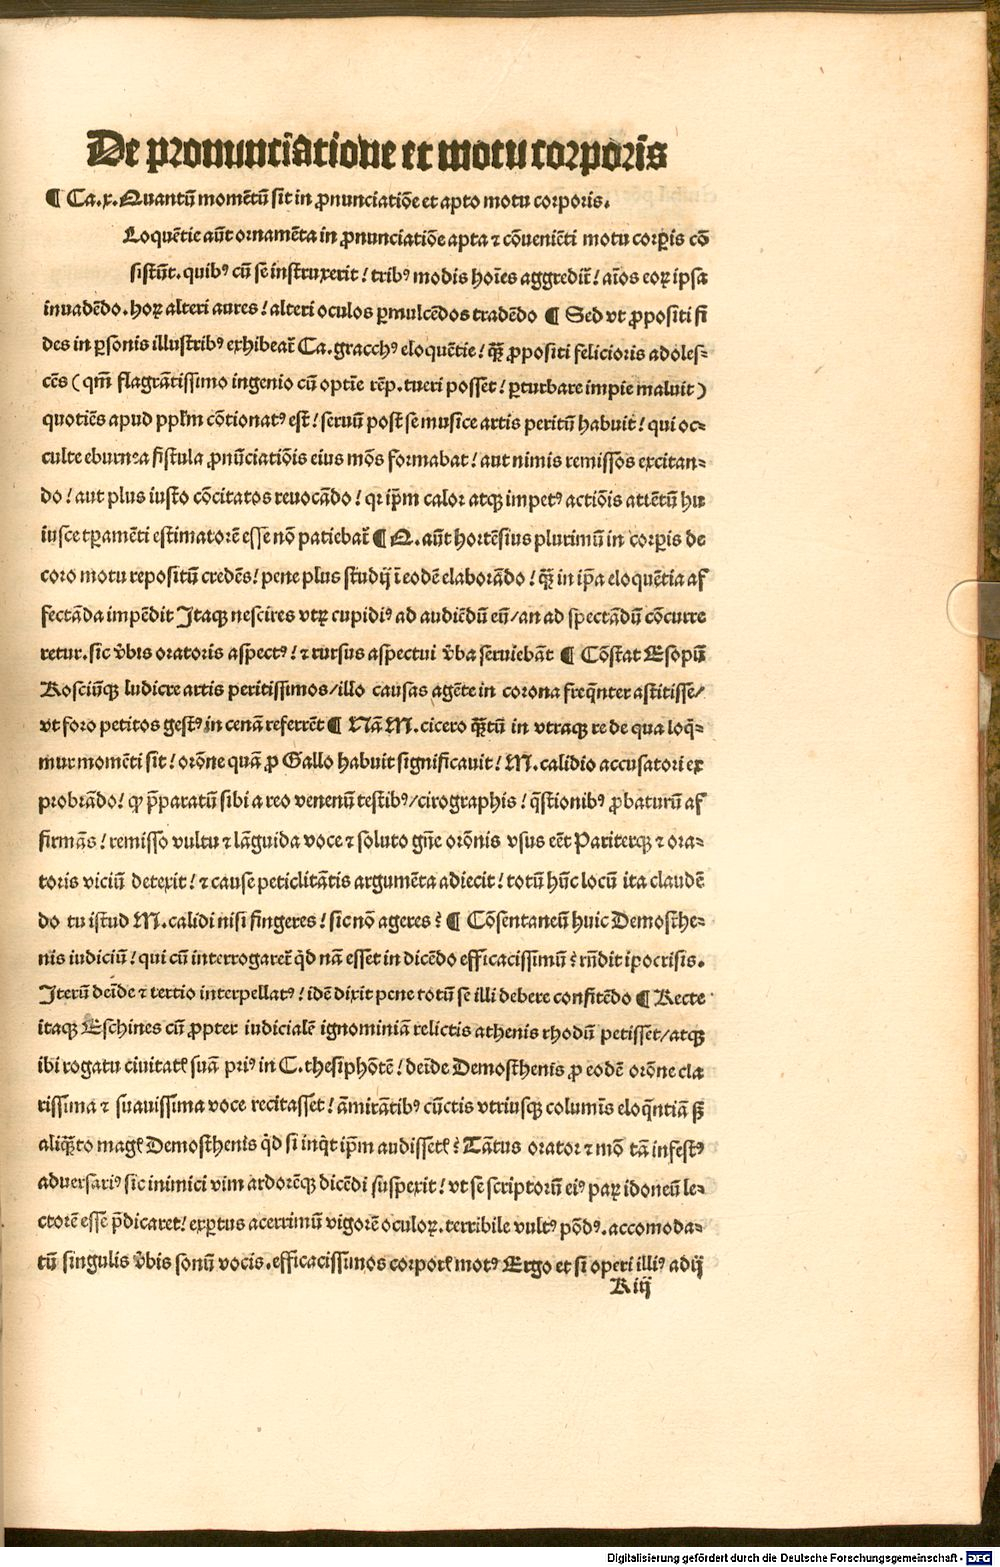 De pronunctiatione et motu corporis
¶ Ca.x. Quantū momētū sit in ꝓnunciatiōe et apto motu corporis.
Loquētie aūt ornamēta in ꝓnunciatiōe apta ⁊ cōueniēti motu corꝑis cō
sistūt. quibꝰ cū se instruxerit / tribꝰ modis hoīes aggredit᷑ / aīos eoꝝ ipsa
inuadēdo. hoꝝ alteri aures / alteri oculos ꝑmulcēdos tradēdo ¶ Sed vt ꝓpositi fi
des in ꝑsonis illustribꝰ exhibeat᷑ Ca. gracchꝰ eloquētie / q̄ꝫ ꝓpositi felicioris adoles⸗
cēs (qm̄ flagrātissimo ingenio cū optīe rēp. tueri posset / ꝑturbare impie maluit)
quotiēs apud pplm̄ cōtionatꝰ est / seruū post se musice artis peritū habuit / qui oc⸗
culte eburnea fistula ꝓnūciatiōis eius mōs formabat / aut nimis remissos excitan⸗
do / aut plus iusto cōcitatos reuocādo / qꝛ ip̄m calor atqꝫ impetꝰ actiōis attētū hu
iusce tꝑamēti estimatorē esse nō patiebat᷑ ¶ Q. aūt hortēsius plurimū in corꝑis de
coro motu repositū credēs / pene plus studij ī eodē elaborādo / q̄ꝫ in ip̄a eloquētia af
fectāda impēdit Itaqꝫ nescires vtꝝ cupidiꝰ ad audiēdū eū / an ad spectādū cōcurre
retur. sic v̄bis oratoris aspectꝰ / ⁊ rursus aspectui v̄ba seruiebāt ¶ Cōstat Esopū
Rosciūqꝫ ludicre artis peritissimos / illo causas agēte in corona freq̄nter astitisse /
vt foro petitos gestꝰ in cenā referrēt ¶ Nā M. cicero q̄ꝫtū in vtraqꝫ re de qua loq̄⸗
mur momēti sit / orōne quā ꝓ Gallo habuit significauit / M. calidio accusatori ex
probrādo / ꝙ p̄paratū sibi a reo venenū testibꝰ / cirographis / q̄stionibꝰ ꝓbaturū af
firmās / remisso vultu ⁊ lāguida voce ⁊ soluto gn̄e orōnis vsus eēt Pariterqꝫ ⁊ ora⸗
toris viciū detexit / ⁊ cause periclitātis argumēta adiecit / totū hūc locū ita claudē
do tu istud M. calidi nisi fingeres / sic nō ageres? ¶ Cōsentaneū huic Demosthe⸗
nis iudiciū / qui cū interrogaret᷑ qd nā esset in dicēdo efficacissimū? rn̄dit ipocrisis.
Iterū deīde ⁊ tertio interpellatꝰ / idē dixit pene totū se illi debere confitēdo ¶ Recte
itaqꝫ Eschines cū ꝓpter iudicialē ignominiā relictis athenis rhodū petisset / atqꝫ
ibi rogatu ciuitatꝭ suā priꝰ in C. thesiphōtē / deīde Demosthenis ꝓ eodē orōne cla
rissima ⁊ suauissima voce recitasset / āmirātibꝰ cūctis vtriusqꝫ columīs eloq̄ntiā ꝸ
aliq̄ꝫto magꝭ Demosthenis qd si inqt ip̄m audissetꝭ? Tātus orator ⁊ mō tā infestꝰ
aduersariꝰ sic inimici vim ardorēqꝫ dicēdi suspexit / vt se scriptorū eiꝰ paꝝ idoneū le⸗
ctorē esse p̄dicaret / exꝑtus acerrimū vigorē oculoꝝ. terribile vultꝰ pōdꝰ. accomoda⸗
tū singulis v̄bis sonū vocis. efficacissimos corporꝭ motꝰ Ergo et si operi illiꝰ adij
K iij
Digitalisierung gefördert durch die Deutsche Forschungsgemeinschaft - DFG